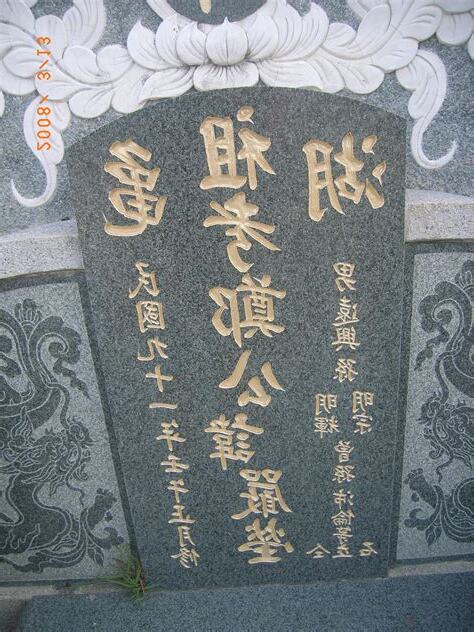 龜湖
民國九十一年壬午正月修
祖考鄭公諱嚴塋
男遠興孫明宗明輝曾孫沛倫等
2008/3/13